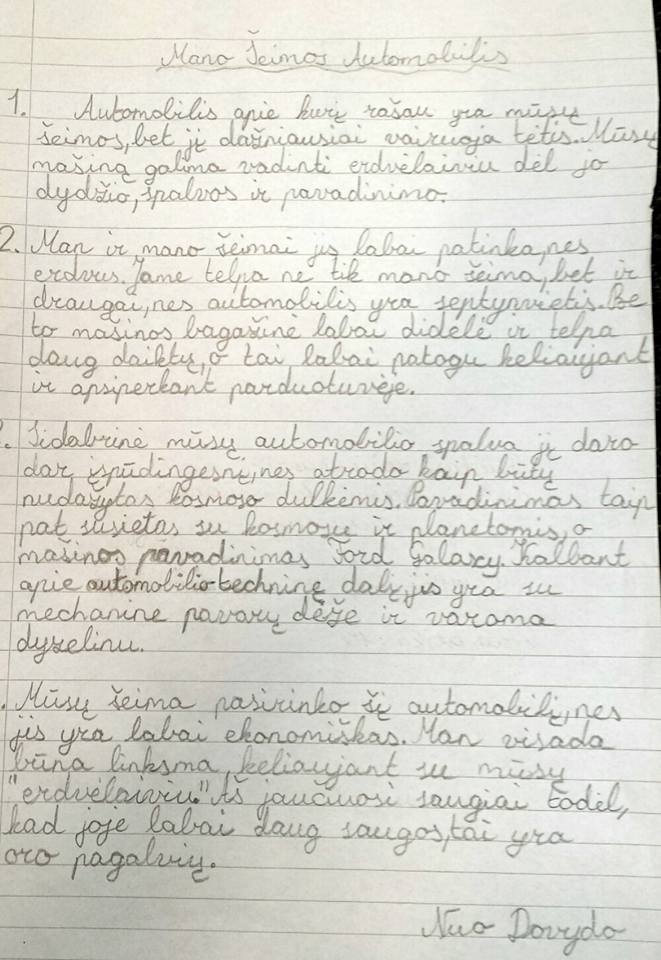 Mano Šeimos Automobilis
1. Automobilis apie kurį rašau yra mūsų
šeimos, bet jį dažniausiai vairuoja tėtis. Mūsų
mašiną galima vadinti erdvėlaiviu dėl jo
dydžio, spalvos ir pavadinimo.
2. Man ir mano šeimai jis labai patinka, nes
erdvus. Jame telpa ne tik mano šeima, bet ir
draugai, nes automobilis yra septynvietis. Be
to mašinos bagažinė labai didelė ir telpa
daug daiktų, o tai labai patogu keliaujant
ir apsiperkant parduotuvėje.
Sidabrinė mūsų automobilio spalva jį daro
dar įspūdingesnį, nes atrodo kaip būtų
nudažytas kosmoso dulkėmis. Pavadinimas taip
pat susietas su kosmosu ir planetomis, o
mašinos pavadinimas Ford Galaxy. Kalbant
apie automobilio techninę dalį, jis yra su
mechanine pavarų dėže ir varoma
dyzelinu.
. Mūsų šeima pasirinko šį automobilį, nes
jis yra labai ekonomiškas. Man visada
būna linksma, keliaujant su mūsų
"erdvėlaiviu." Aš jaučiuosi saugiai todėl,
kad joje labai daug saugos, tai yra
oro pagalvių.
Nuo Dovydo